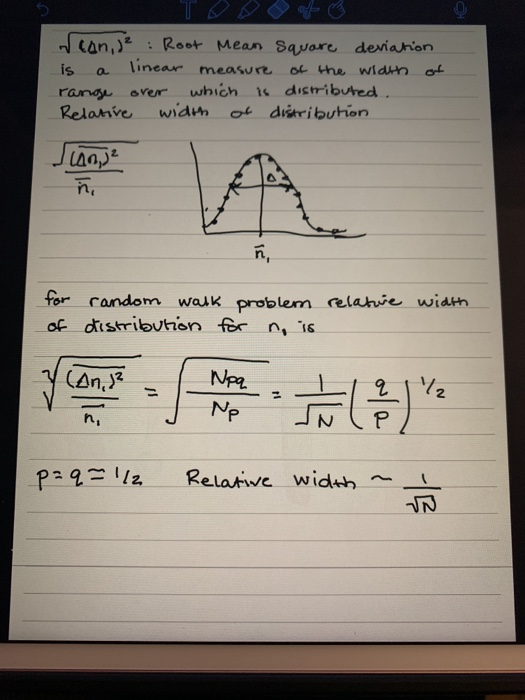 √(Δn₁)² : Root Mean Square deviation
is a linear measure of the width of
range over which is distributed.
Relative width of distribution
√(Δn₁)² / n̄₁
Δ
n̄₁
for random walk problem relative width
of distribution for n₁ is
√((Δn₁)² / n̄₁) = √(Npq / Np) = 1/√N (q/p)^1/2
p = q = 1/2 Relative width ~ 1/√N